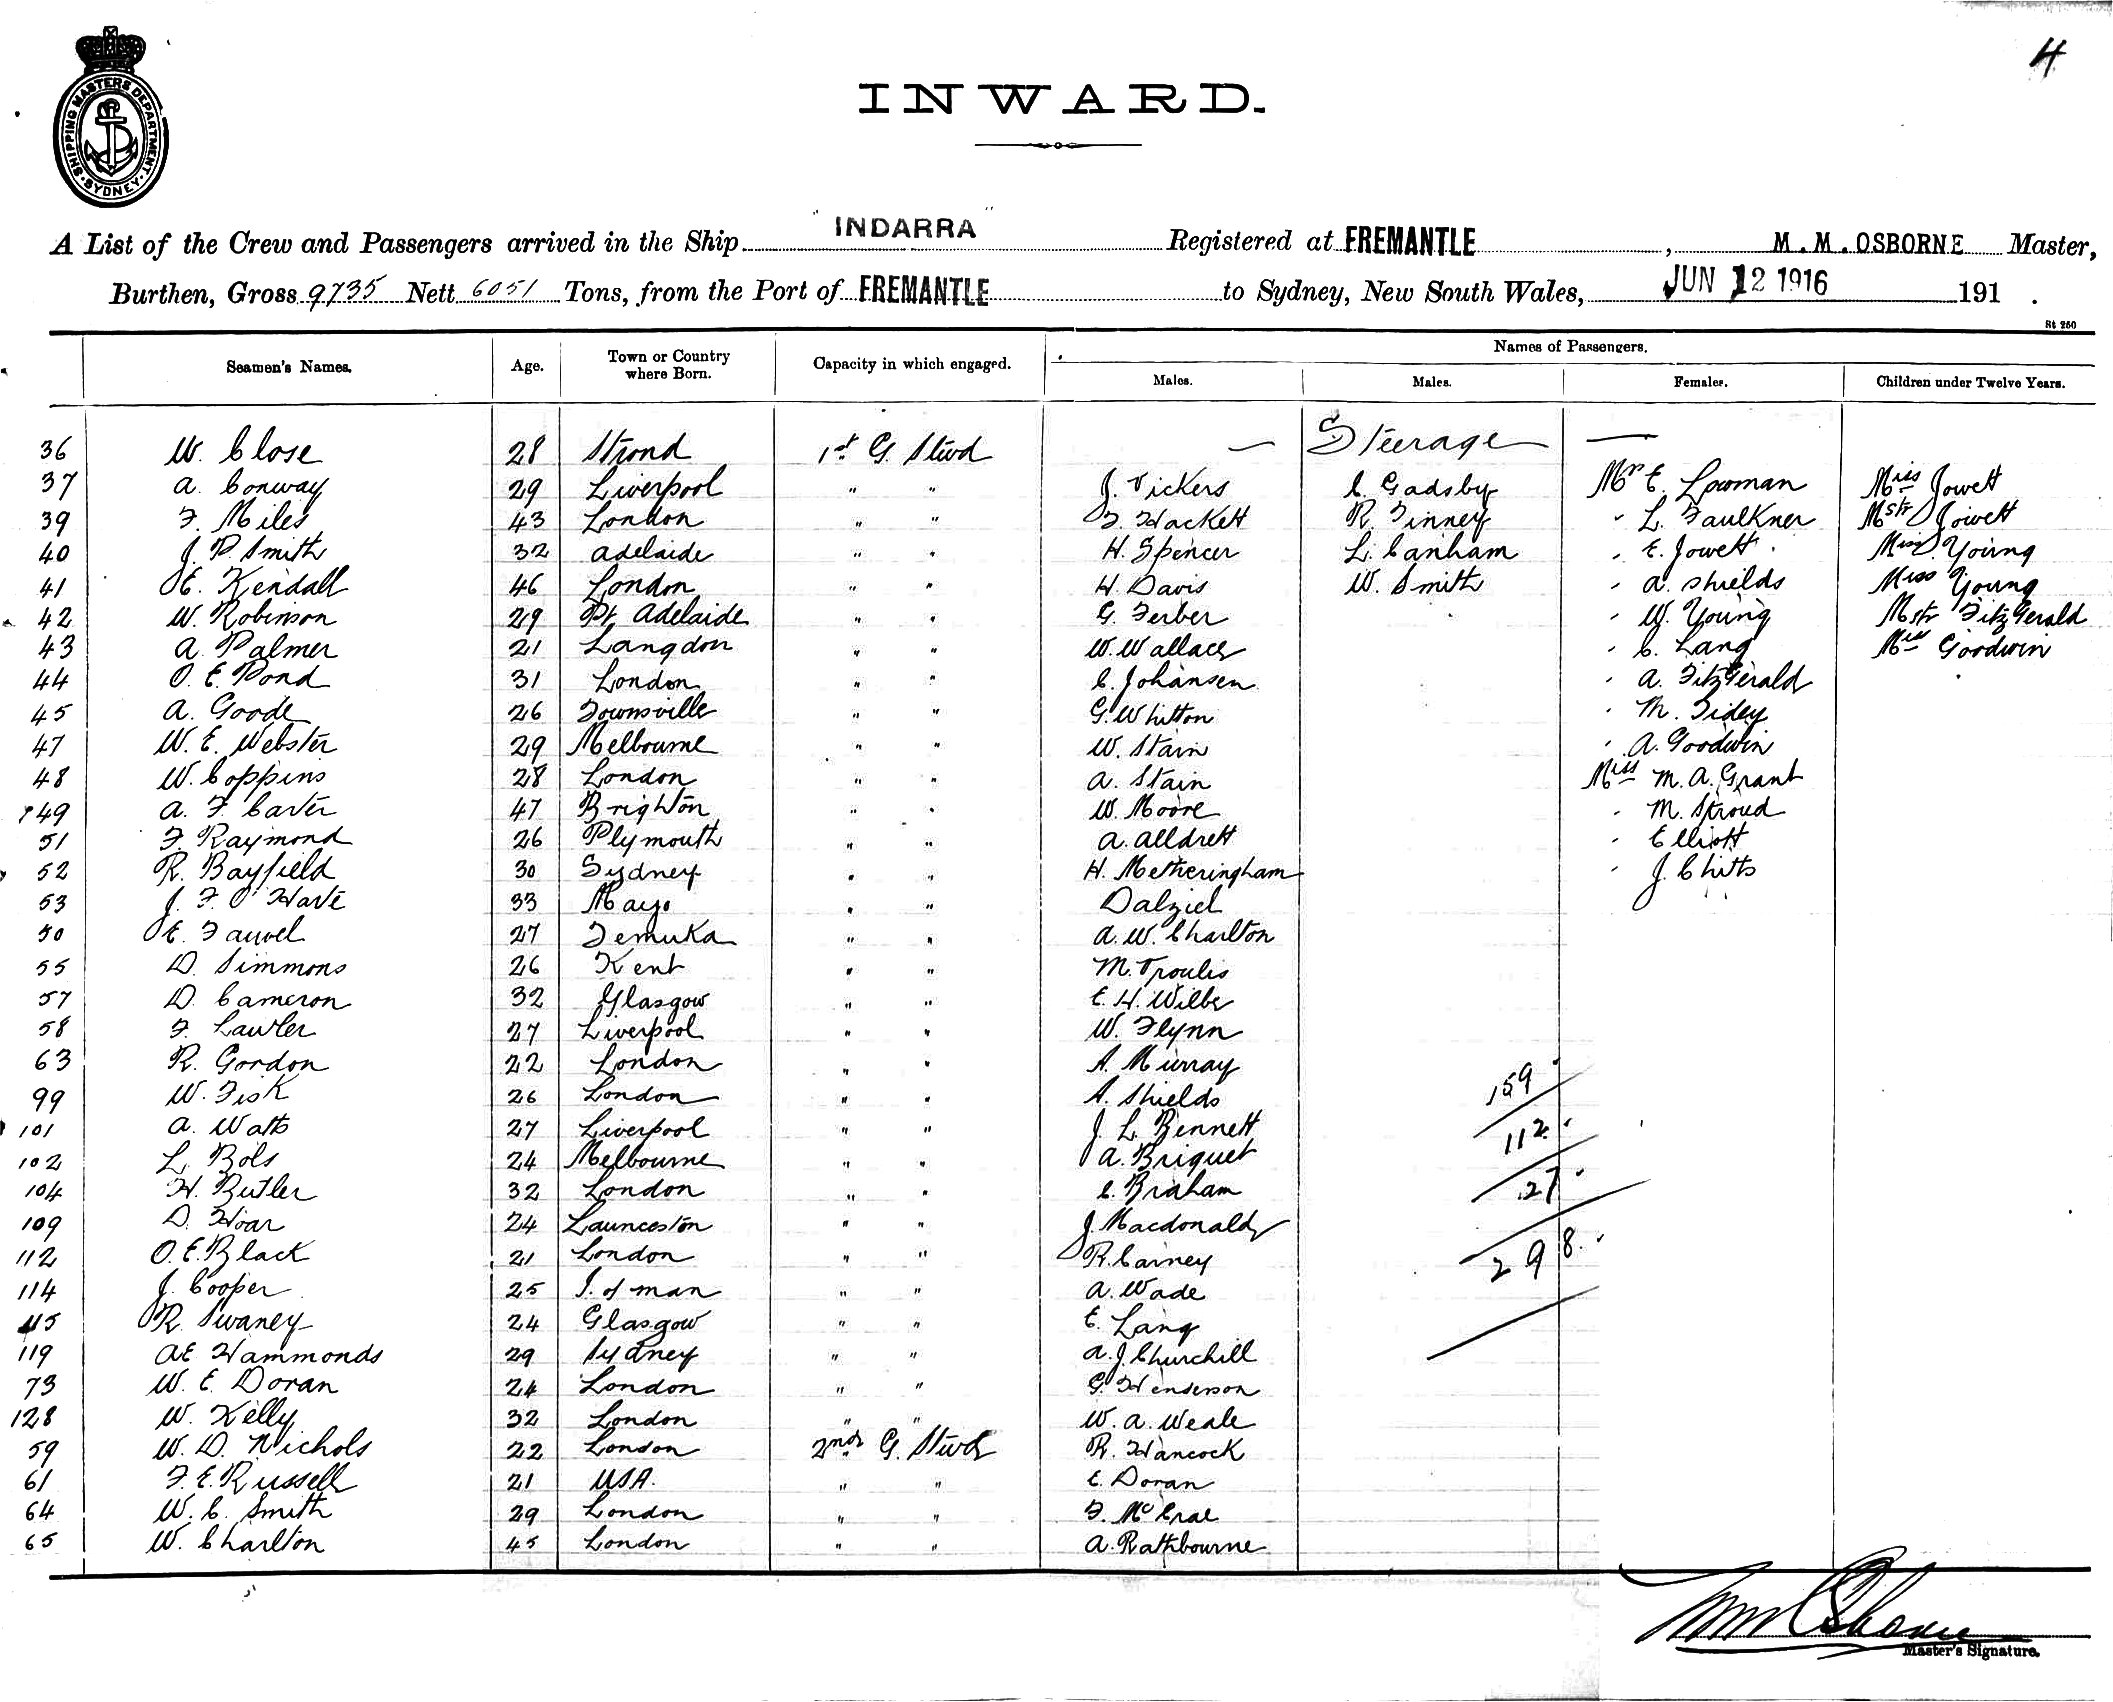 4
SHIPPING MASTERS DEPARTMENT
· SYDNEY ·
INWARD.
A List of the Crew and Passengers arrived in the Ship "INDARRA" Registered at FREMANTLE, M. M. OSBORNE Master,
Burthen, Gross 9735 Nett 6051 Tons, from the Port of FREMANTLE to Sydney, New South Wales, JUN 12 1916 191 .
St 250
Seamen's Names. Age. Town or Country where Born. Capacity in which engaged. Names of Passengers.
Males. Males. Females. Children under Twelve Years.
36 W. Close 28 Strond 1st G. Stwd — Steerage —
37 A. Conway 29 Liverpool " " J. Vickers C. Gadsby Mrs E. Lowman Miss Jowett
39 F. Miles 43 London " " F. Hackett R. Finney " L. Faulkner Mstr Jowett
40 J. P. Smith 32 Adelaide " " H. Spencer L. Canham " E. Jowett Miss Young
41 E. Kendall 46 London " " H. Davis W. Smith " A. Shields Miss Young
42 W. Robinson 29 Pt Adelaide " " G. Ferber " W. Young Mstr FitzGerald
43 A. Palmer 21 Langdon " " W. Wallace " C. Lang Miss Goodwin
44 O. E. Pond 31 London " " C. Johansen " A. FitzGerald
45 A. Goode 26 Townsville " " G. Whitton " M. Tidey
47 W. E. Webster 29 Melbourne " " W. Stain " A. Goodwin
48 W. Coppins 28 London " " A. Stain Miss M. A. Grant
49 A. F. Carter 47 Brighton " " W. Moore " M. Stroud
51 F. Raymond 26 Plymouth " " A. Alldrett " Elliott
52 R. Bayfield 30 Sydney " " H. Metheringham " J. Chitts
53 J. F. O'Hare 33 Mayo " " Dalziel
50 E. Fauvel 27 Temuka " " A. W. Charlton
55 D. Simmons 26 Kent " " M. Troulis
57 D. Cameron 32 Glasgow " " E. H. Wilbe
58 F. Lawler 27 Liverpool " " W. Flynn
63 R. Gordon 22 London " " A. Murray
99 W. Fisk 26 London " " A. Shields 159
101 A. Watts 27 Liverpool " " J. L. Bennett 112
102 L. Bols 24 Melbourne " " A. Briquet
104 H. Butler 32 London " " C. Braham 27
109 D. Hoar 24 Launceston " " J. Macdonald
112 O. E. Black 21 London " " R. Carney 298
114 J. Cooper 25 I. of Man " " A. Wade
115 R. Swaney 24 Glasgow " " E. Lang
119 A E Hammonds 29 Sydney " " A. J. Churchill
73 W. E. Doran 24 London " " G. Henderson
128 W. Kelly 32 London " " W. A. Weale
59 W. D. Nichols 22 London 2nd G. Stwd R. Hancock
61 F. E. Russell 21 USA. " " E. Doran
64 W. C. Smith 29 London " " F. McCrae
65 W. Charlton 45 London " " A. Rathbourne
MM Osborne
Master's Signature.